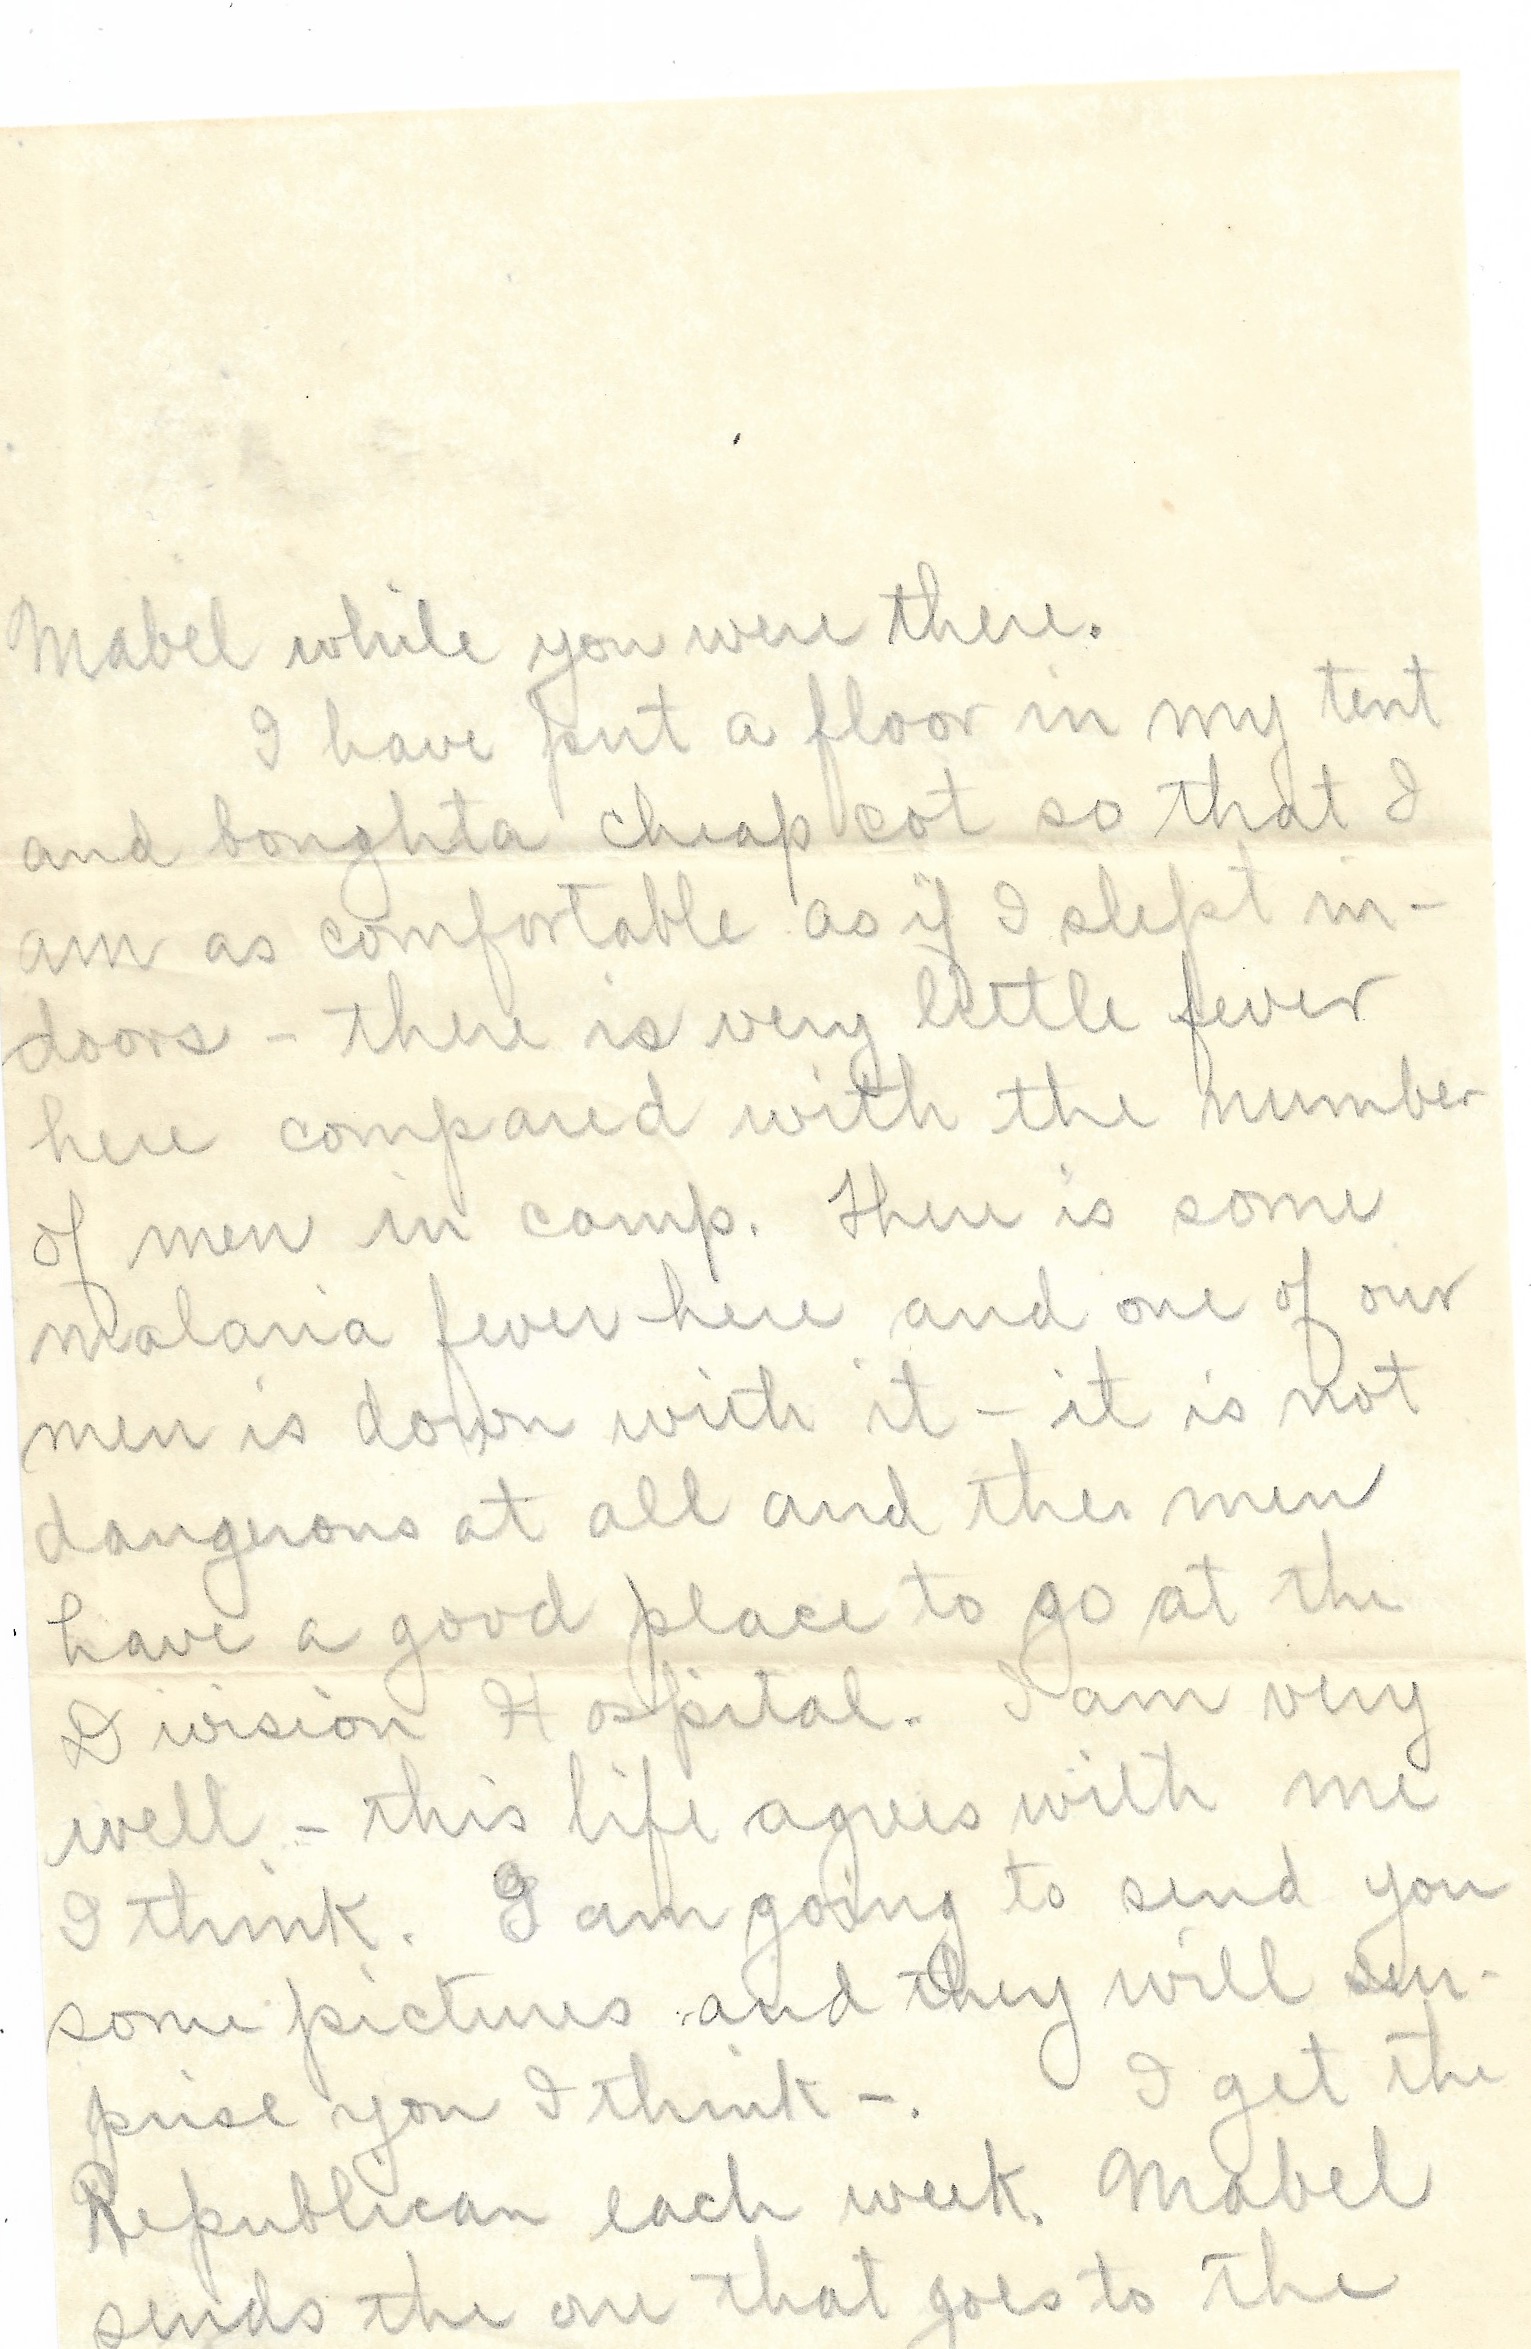 Mabel while you were there.
I have put a floor in my tent
and bought a cheap cot so that I
am as comfortable as if I slept in-
doors - there is very little fever
here compared with the number
of men in camp. There is some
malaria fever here and one of our
men is down with it - it is not
dangerous at all and the men
have a good place to go at the
Division Hospital. I am very
well - this life agrees with me
I think. I am going to send you
some pictures and they will sur-
prise you I think -. I get the
Republican each week. Mabel
sends the one that goes to the